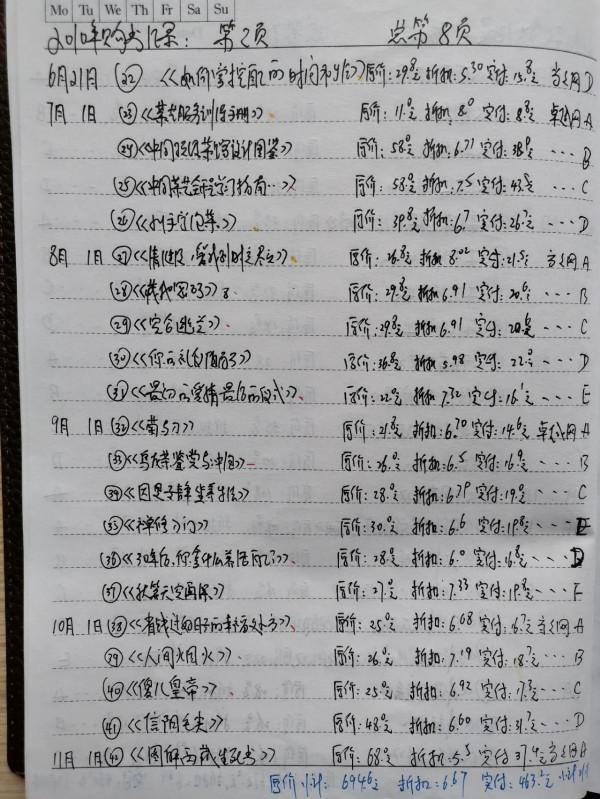 Mo Tu We Th Fr Sa Su
2010年购书记录: 第2页 总第8页
6月21日 (22) 《如何掌控自己的时间和生活》 原价:29.8元 折扣:5.30 实付:15.8元 当当网 D
7月1日 (23) 《茶艺服务训练手册》 原价:11.0元 折扣:8.0 实付:8.8元 卓越网 A
(24) 《中国经典茶馆设计图鉴》 原价:58.0元 折扣:6.71 实付:38.9元 … B
(25) 《中国茶艺会馆学习指南…》 原价:58.0元 折扣:7.5 实付:43.5元 … C
(26) 《 茶》 原价:39.8元 折扣:6.7 实付:26.7元 … D
8月1日 (27) 《 》 原价:26.8元 折扣8.02 实付:21.5元 当当网 A
(28) 《 》 原价:29.8元 折扣6.91 实付:20.6元 … B
(29) 《空谷幽兰》 原价:29.8元 折扣6.91 实付: … C
(30) 《你的礼仪价值百万》 原价:36.8元 折扣:5.98 实付:22.0元 … D
(31) 《最初的爱情最后的仪式》 原价:22.0元 折扣7.32 实付:16.1元 … E
9月1日 (32) 《菊与刀》 原价:21.8元 折扣:6.70 实付:14.6元 卓越网 A
(33) 《 茶鉴赏与冲泡》 原价:26.0元 折扣:6.5 实付:16.9元 … B
(34) 《因是子静坐养生法》 原价:28.0元 折扣6.79 实付:19.0元 … C
(35) 《禅修入门》 原价:30.0元 折扣:6.6 实付:19.8元 … E
(36) 《30年后,你拿什么养活自己?》 原价:28.0元 折扣:6.0 实付:16.8元 … D
(37) 《 》 原价:27.0元 折扣:7.33 实付:19.8元 … F
10月1日 (38) 《省钱过的日子 幸福处方》 原价:25.0元 折扣:6.68 实付:6.7元 当当网 A
(39) 《人间烟火》 原价:26.0元 折扣:7.19 实付:18.7元 … B
(40) 《傻儿皇帝》 原价:25.0元 折扣:6.92 实付:17.3元 … C
(41) 《信阳毛尖》 原价:48.0元 折扣:6.60 实付:31.7元 … D
11月1日 (42) 《图解西藏生死书》 原价:68.0元 折扣:5.5 实付:37.4元 当当网 A
原价小计: 694.6元 折扣:6.67 实付:463.2元 小计